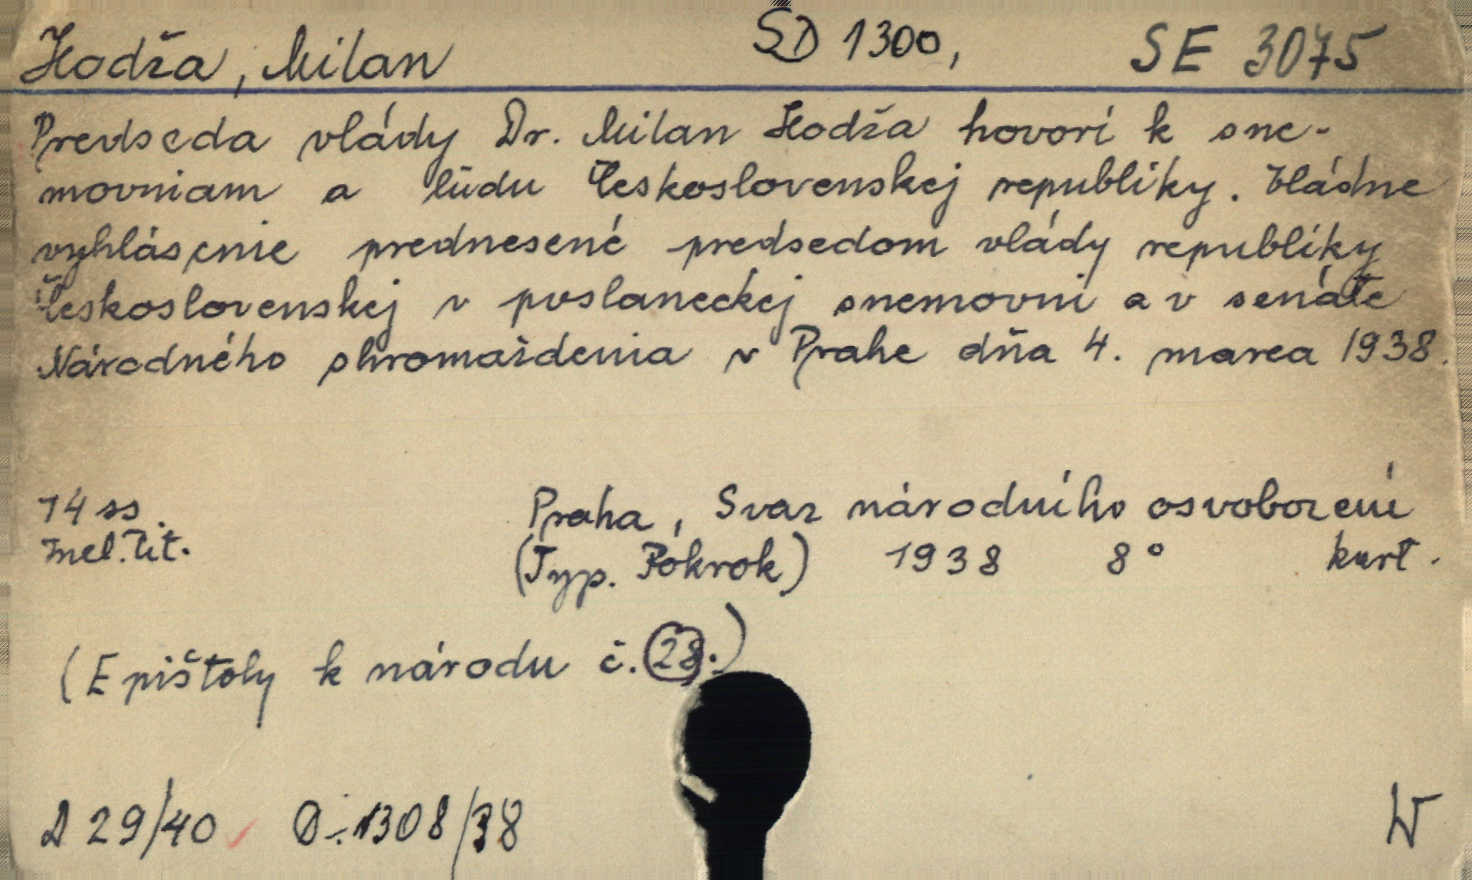 Hodža, Milan SD 1300, SE 3075
Predseda vlády Dr. Milan Hodža hovorí k sne-
movniam a ľudu Československej republiky. Vládne
vyhlásenie prednesené predsedom vlády republiky
Československej v poslaneckej snemovni a v senáte
Národného shromaždenia v Prahe dňa 4. marca 1938.
14 ss Praha, Svaz národního osvobození
mel. tit. (Typ. Pokrok) 1938 8° kart.
(Epištoly k národu č. 28.)
D 29/40 1308/38 W